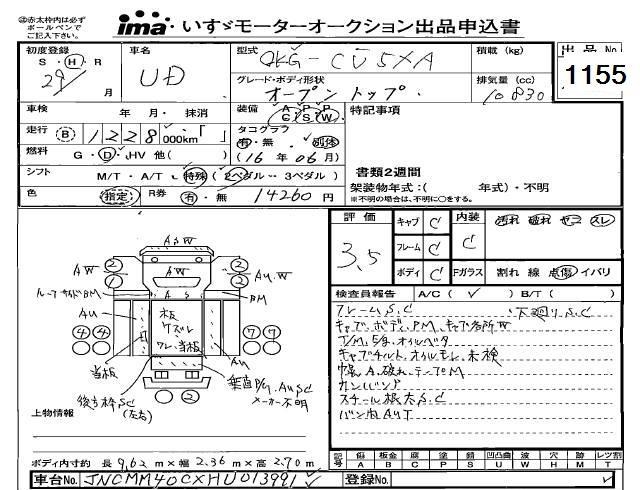 ㊟赤太枠内は必ず
ボールペンで
ご記入下さい。
ima いすゞモーターオークション出品申込書
初度登録 車名 型式 積載 (kg) 出品No
S・H・R QKG-CU5XA 1155
29/ 月 UD グレード・ボディ形状 排気量 (cc)
オープントップ 10830
車検 年 月・抹消 装備 A P P C S W 特記事項
走行 B 1228 000km「 」 タコグラフ
有・無・別体
燃料 G・D・HV 他( ) (16年06月) 書類2週間
シフト M/T・A/T・特殊 (2ペダル・・3ペダル) 架装物年式:( 年式)・不明
※不明の場合は、不明に○をする。
色 指定 R券 有・無 14260円
評価 キャブ C 内装 汚れ 破れ ヤニ スレ
3.5 フレーム C C
ボディ C Fガラス 割れ 線 点傷 イバリ
検査員報告 A/C( ✓ ) B/T( )
フレームS.C 下廻りS.C
キャブ、ボディPM、キャブ各所W
T/M、E/g、オイルベタ
キャブチルト、オイルモレ、未検
幌A、破れ、テープM
カンバンド
スチール根太S.C
バン内AUT
ASW
AW 2 2 AU.W
ルーフサイドBM A S BM
AU 板 ケズレ ワレ、当板 AU
4 4 7 7
当板
後き枠SC
(左右)
垂直P/G AUSC
メーカー不明
2
上物情報
ボディ内寸約 長 9.62 m×幅 2.36 m×高 2.70 m
記号 A傷 B板金 C腐 P塗 S錆 U凹凸曲 W波 H穴 M跡 Tレツ割
車台No. JNCMM40CXHU013991 登録No.